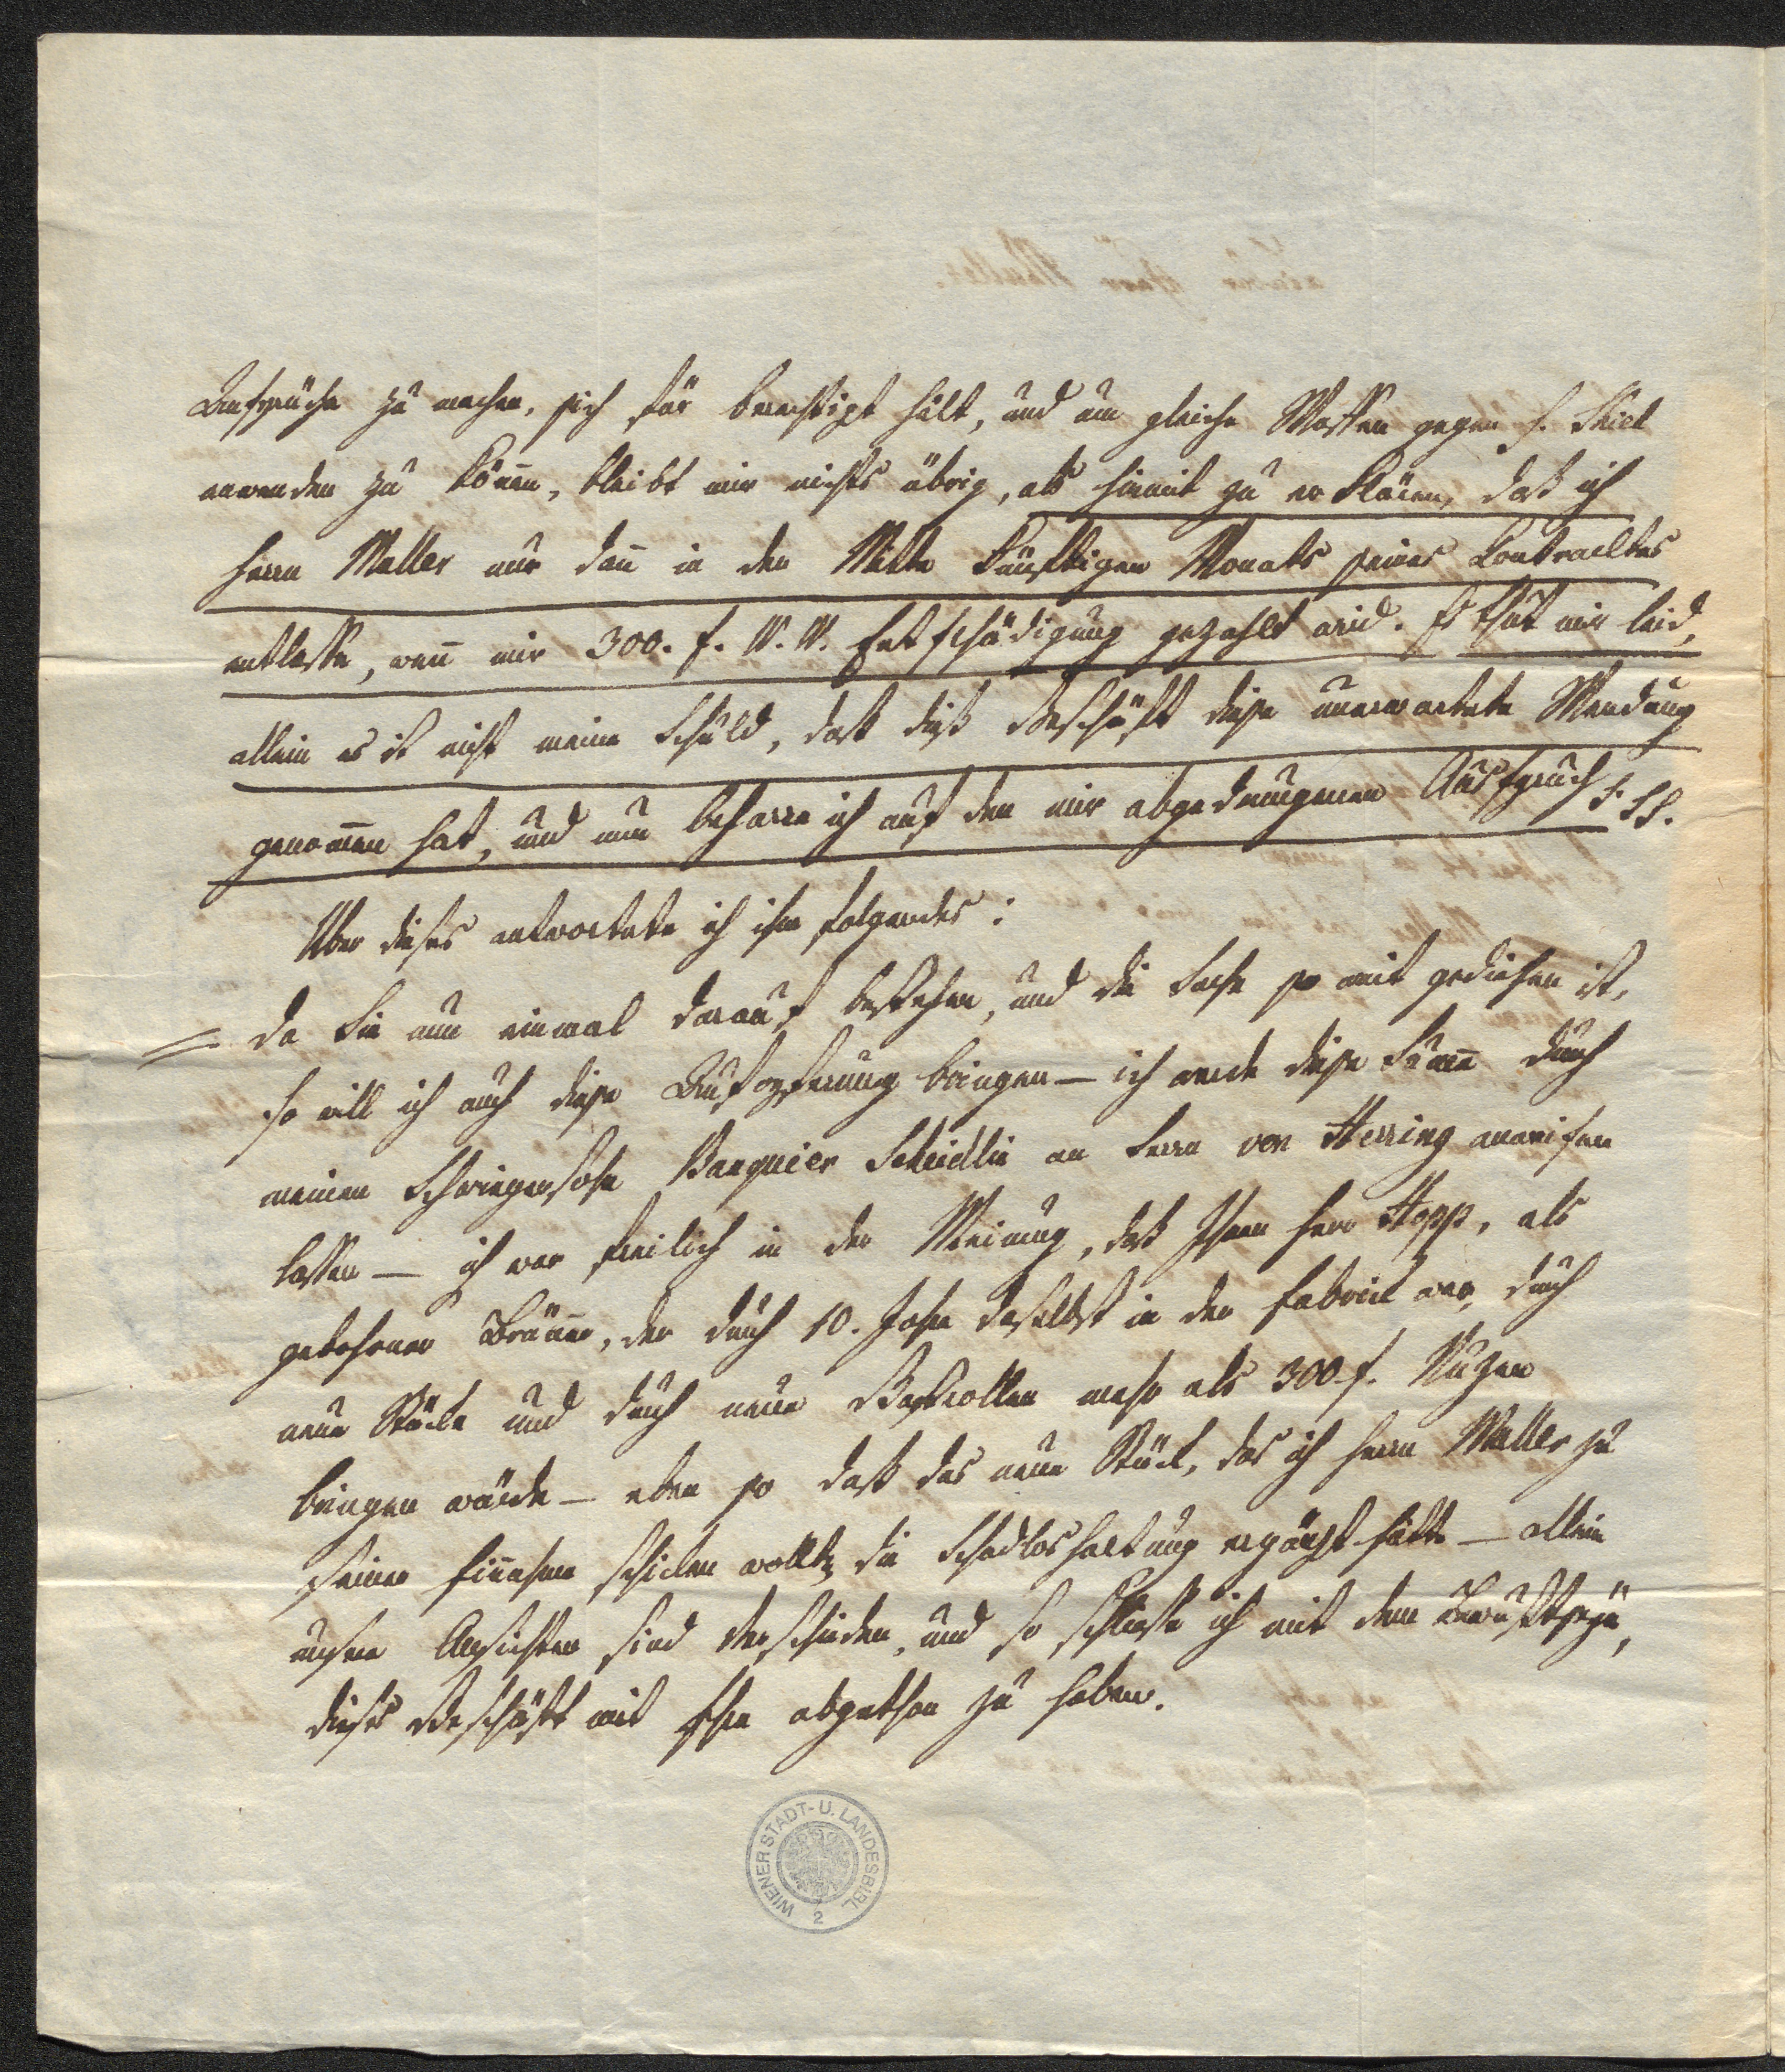 Ansprüche zu machen, sich für berechtigt hält, und um gleiche Waffen gegen H.
anwenden zu könen, bleibt mir nichts übrig, als hiemit zu erklären, daß ich
Herrn Muller nur dañ in der Mitte künftigen Monats seines Contracktes
entlasse, weñ mir 300. f. W. W. Entschädigung gezahlt wird. Es thut mir leid,
allein es ist nicht meine Schuld, daß dieß Geschäft diese unerwartete Wendung
genom̄en hat, und nun beharre ich auf den mir abgedrungenen Ausspruch
Über dieses antwortete ich ihm folgendes:
= Da Sie nun einmal darauf bestehen, und die Sache so weit gediehen ist,
so will ich auch diese Aufopferung bringen – ich werde diese Sum̄e durch
meinen Schwiegersohn Banquier Scheidlin an Herrn von Herring anweisen
lassen – ich war freilich in der Meinung, daß Ihnen Herr Hopp, als
gebohrner Brün̄er, der durch 10. Jahre daselbst in der Fabrick war, durch
neue Stücke und durch neue Gastrollen mehr als 300 f. Nuzen
bringen würde – eben so daß das neue Stück, das ich Herrn Muller zu
seiner Eiñahme schicken wollte, die Schadloshaltung ergänzt hätte – allein
unsere Ansichten sind verschieden, und so schließe ich mit dem Bewußtseyn,
dieses Geschäft mit Ihnen abgethan zu haben.
WIENER STADT- U. LANDESBIBL.
2